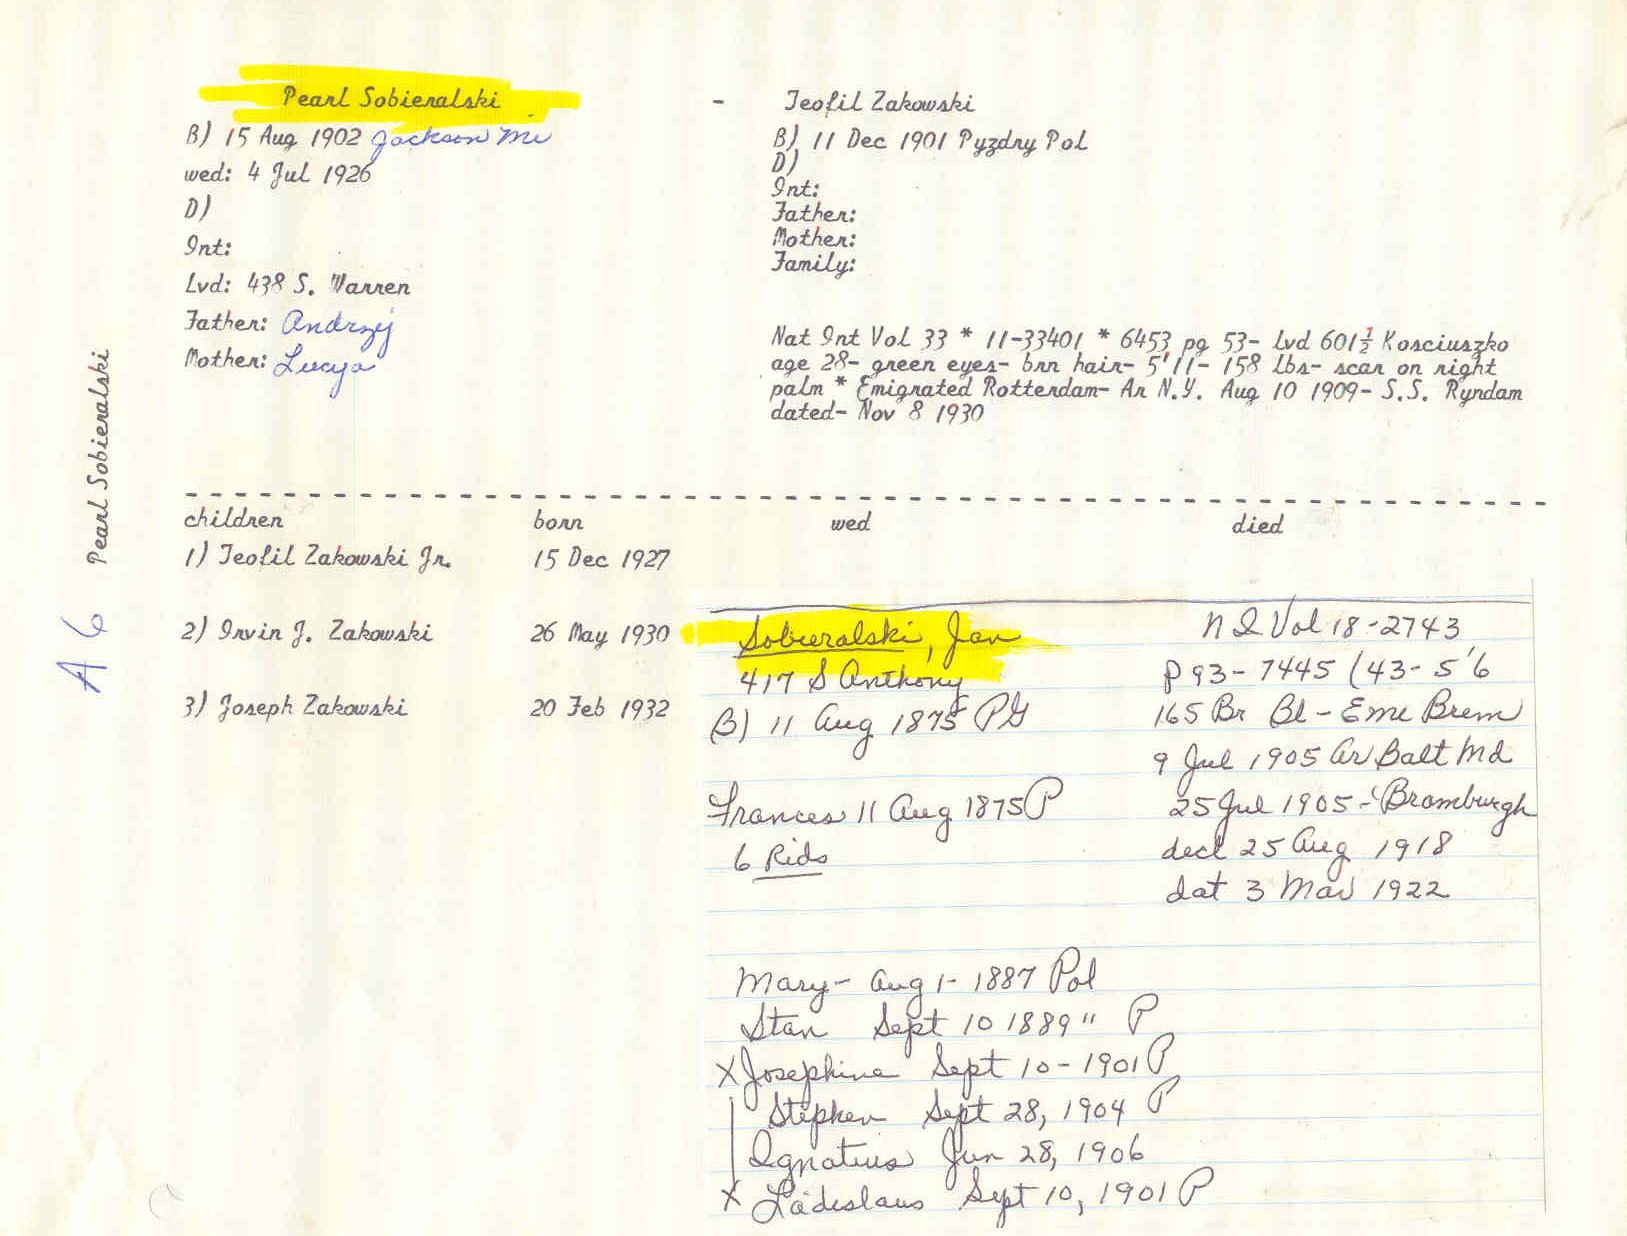 Pearl Sobieralski
B) 15 Aug 1902 Jackson Mi
wed: 4 Jul 1926
D)
Int:
Lvd: 438 S. Warren
Father: Andrzej
Mother: Lucya
- Teofil Zakowski
B) 11 Dec 1901 Pyzdry Pol
D)
Int:
Father:
Mother:
Family:
Nat Int Vol 33 * 11-33401 * 6453 pg 53- Lvd 601½ Kosciuszko
age 28- green eyes- brn hair- 5'11- 158 lbs- scar on right
palm * Emigrated Rotterdam- Ar N.Y. Aug 10 1909- S.S. Ryndam
dated- Nov 8 1930
Pearl Sobieralski
A 6
children born wed died
1) Teofil Zakowski Jr. 15 Dec 1927
2) Irvin J. Zakowski 26 May 1930
3) Joseph Zakowski 20 Feb 1932
Sobieralski, Jan
417 S Anthony
B) 11 Aug 1875 PG
Frances 11 Aug 1875 P
6 Kids
N I Vol 18-2743
p 93-7445 (43-5'6
165 Br Bl - Eme Brem
9 Jul 1905 Ar Balt Md
25 Jul 1905 - Bromburgh
decl 25 Aug 1918
dat 3 Mar 1922
Mary- Aug 1- 1887 Pol
Stan Sept 10 1889 " P
X Josephine Sept 10-1901 P
Stephen Sept 28, 1904 P
Ignatius Jun 28, 1906
X Ladislaus Sept 10, 1901 P